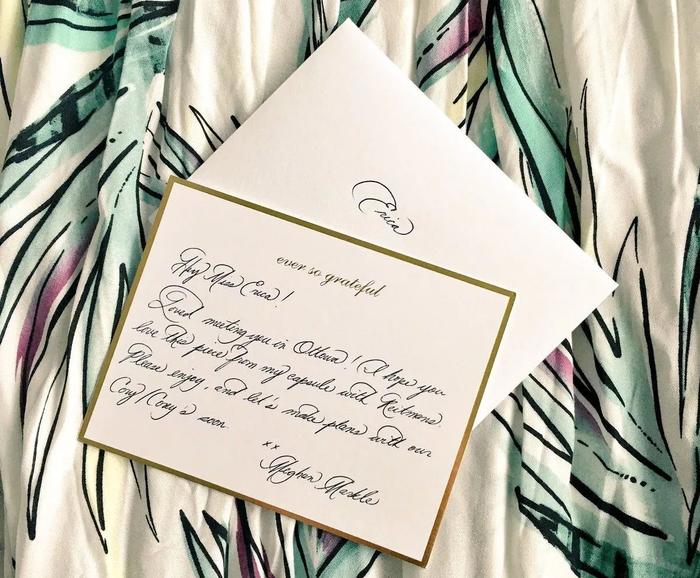 Erica
ever so grateful
Hey Miss Erica!
Loved meeting you in Ottawa! I hope you
love this piece from my capsule with Reitmans.
Please enjoy, and let's make plans with our
Cory/Corey's soon.
xx
Meghan Markle